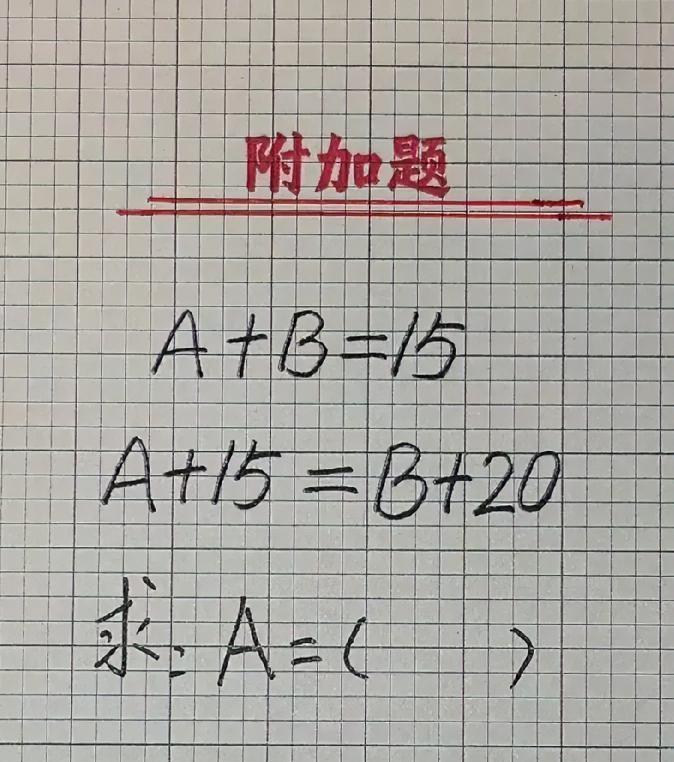 附加题
A+B=15
A+15=B+20
求：A=（ ）